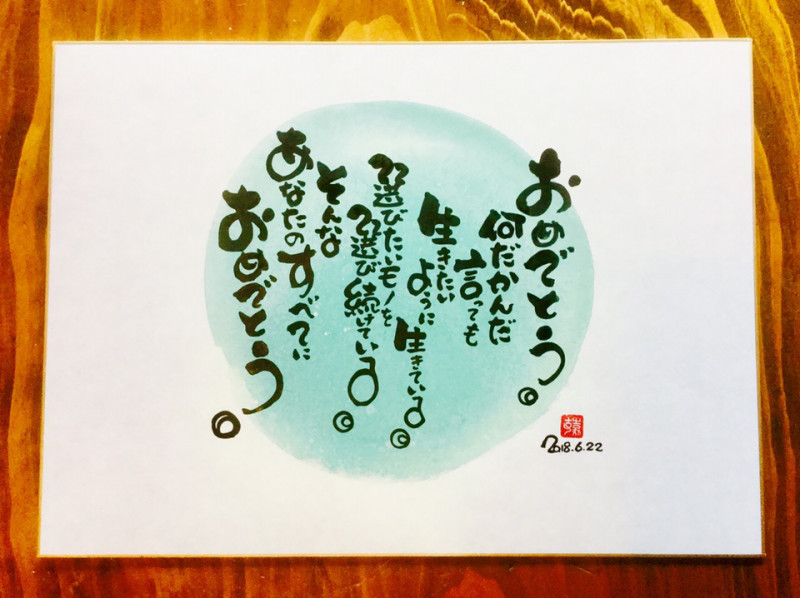 おめでとう。
何だかんだ
言っても
生きたい
ように
生きている。
選びたいモノを
選び続けている。
そんな
あなたのすべてに
おめでとう。
2018.6.22